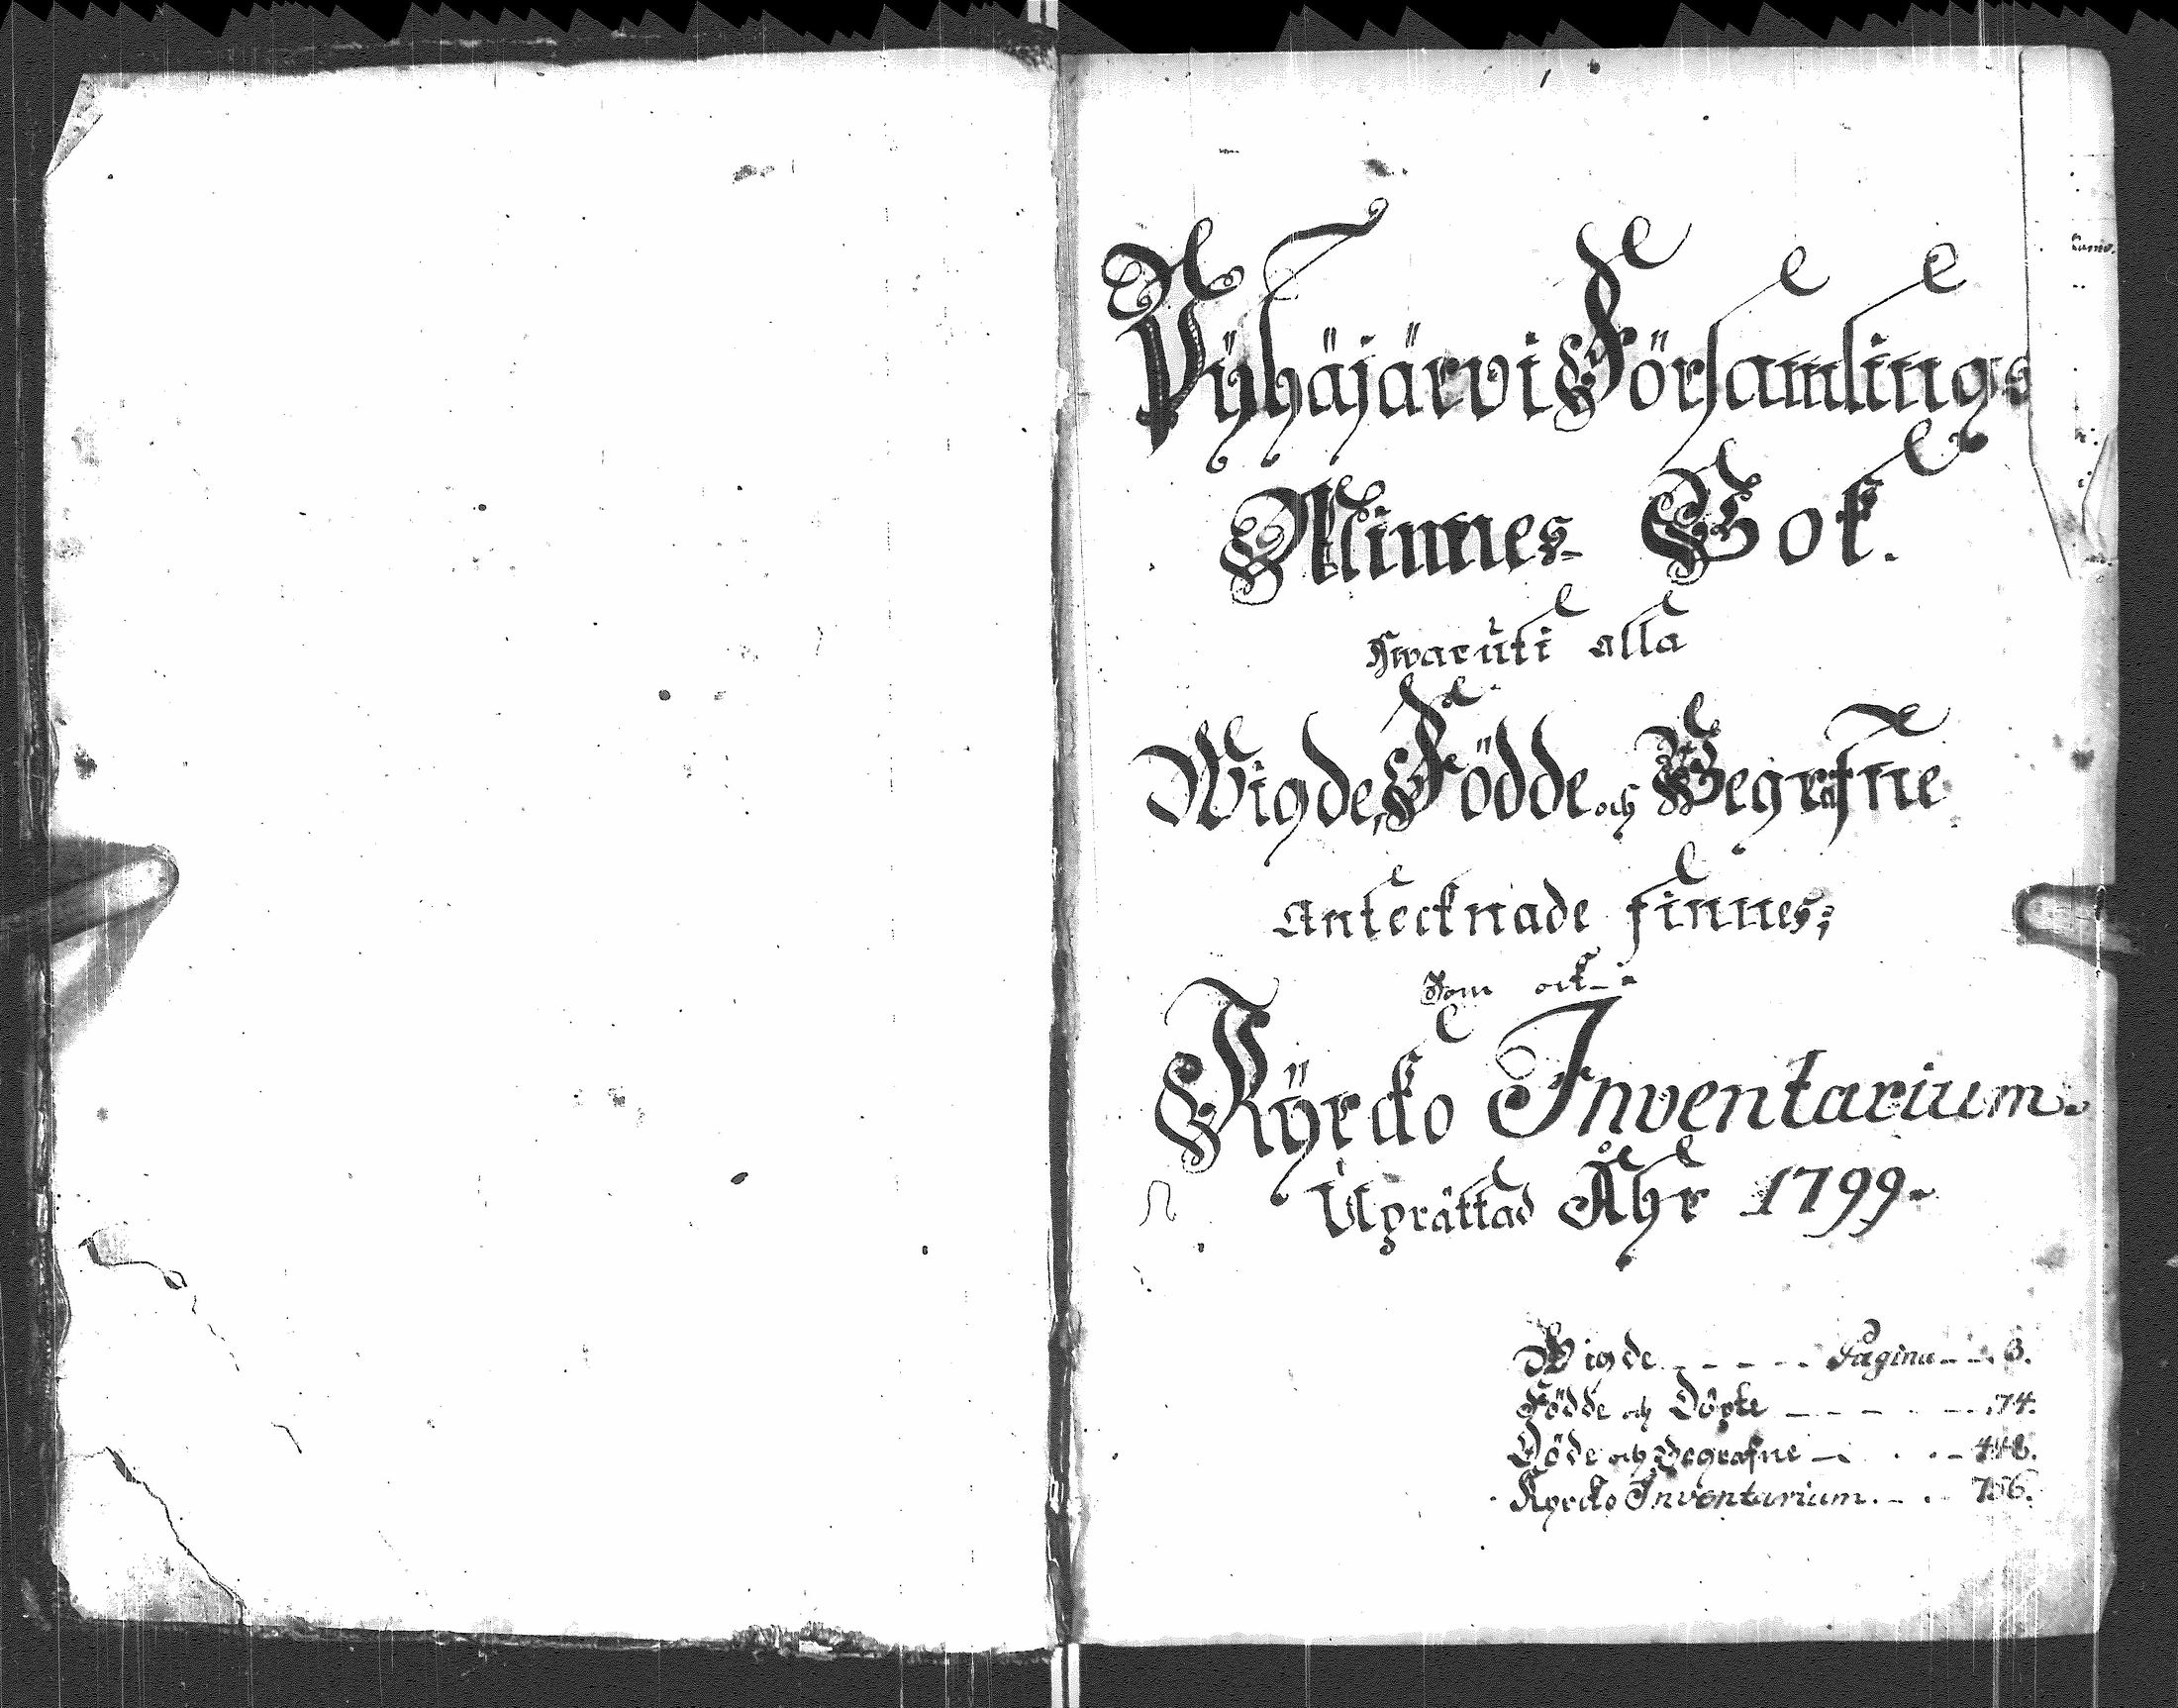 Pÿhäjärvi Församlings
Minnes Bok.
Hwaruti alla
Wigde, Födde och Begrafne
Antecknade finnes;
Som ock
Kÿrcko Inventarium.
Uprättad Åhr 1799.
Wigde Pagina 3.
Födde och Döpte 74.
Döde och Begrafne
Kyrcko Inventarium. 756.